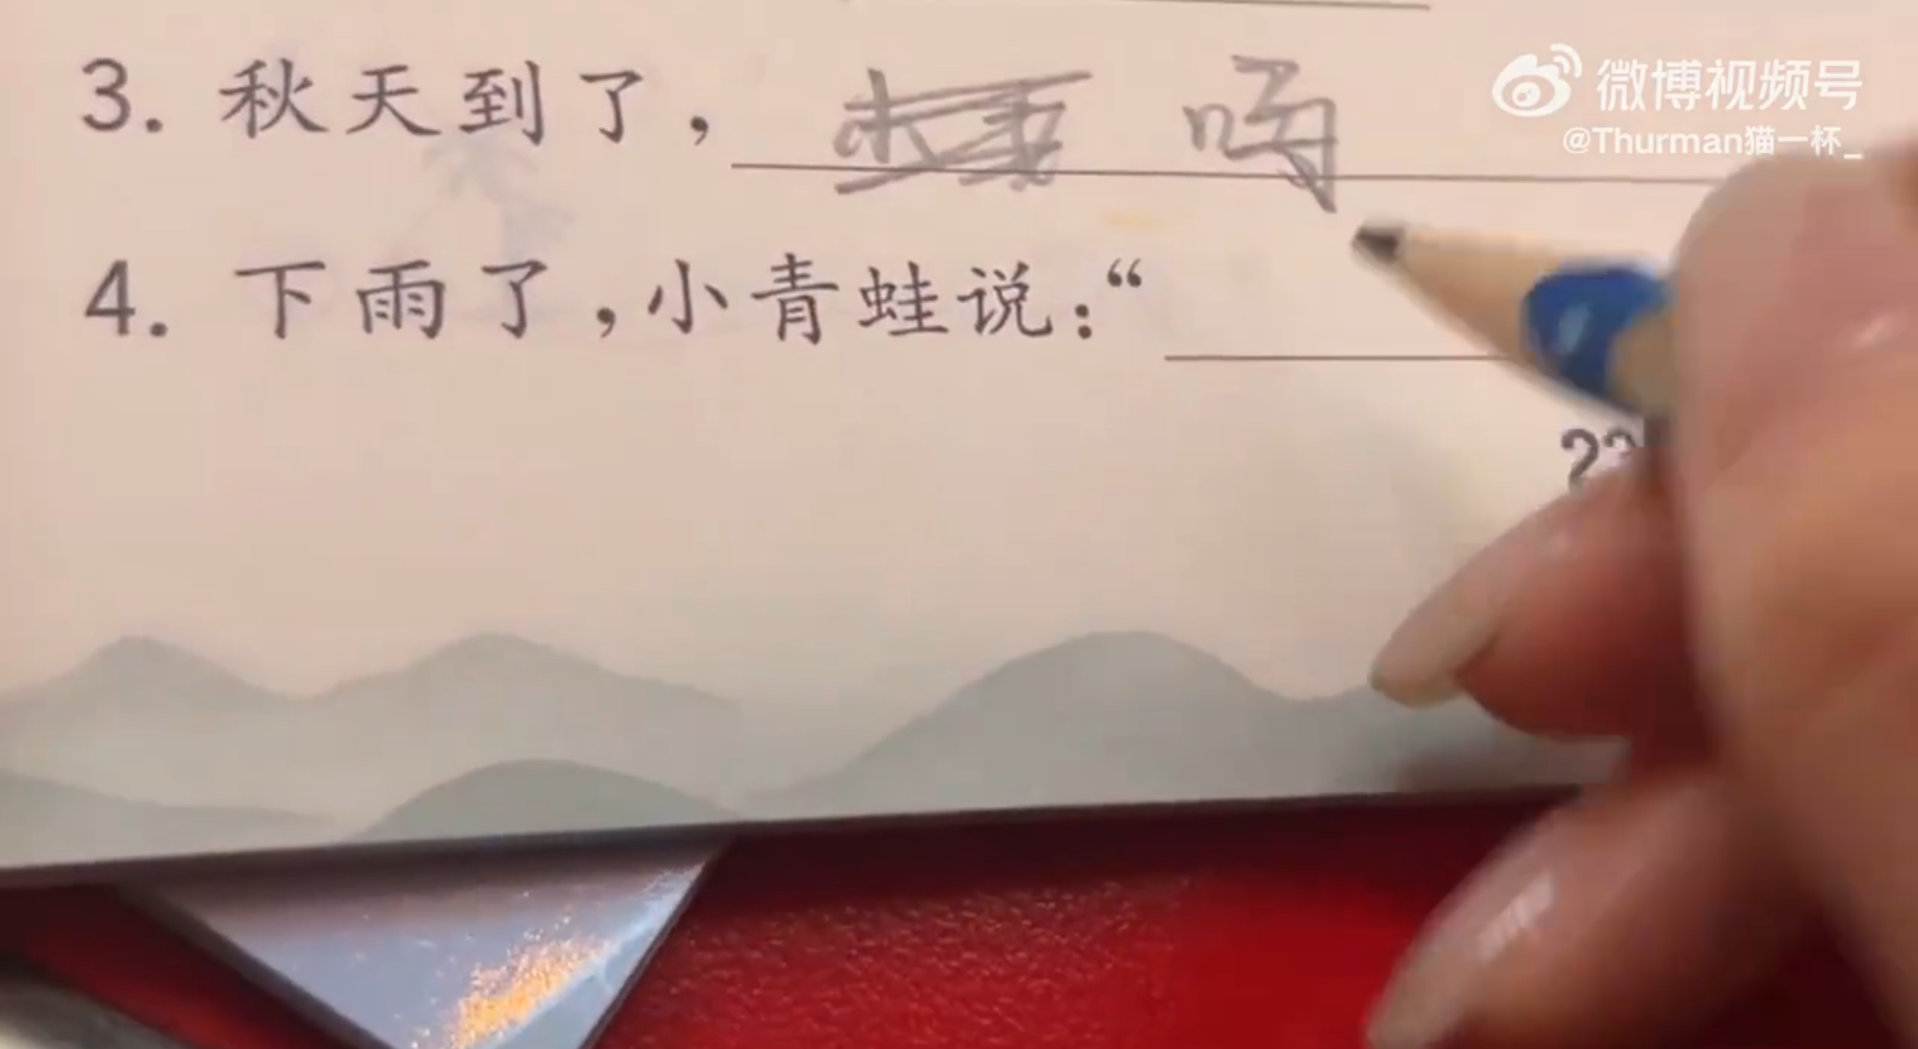 微博视频号
@Thurman猫一杯_
3. 秋天到了， 吗
4. 下雨了，小青蛙说：“